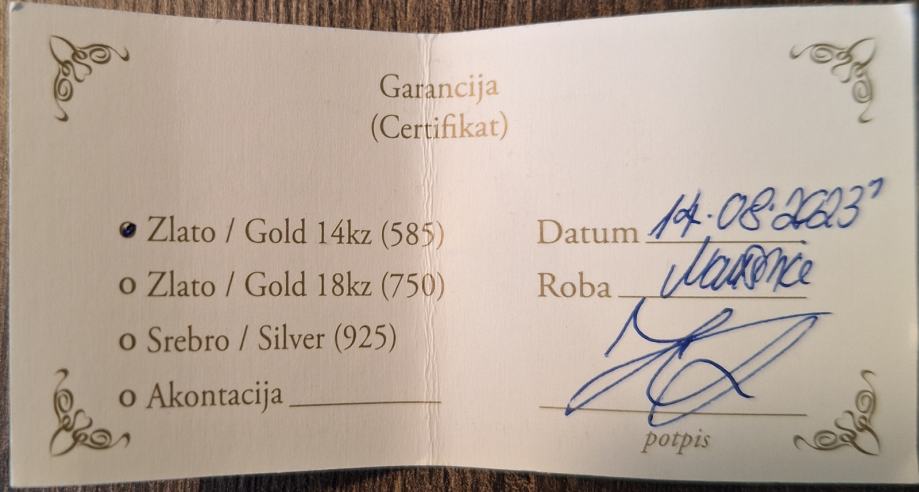 Garancija
(Certifikat)
Zlato / Gold 14kz (585)
Zlato / Gold 18kz (750)
Srebro / Silver (925)
Akontacija
Datum 14.08.2023
Roba
potpis